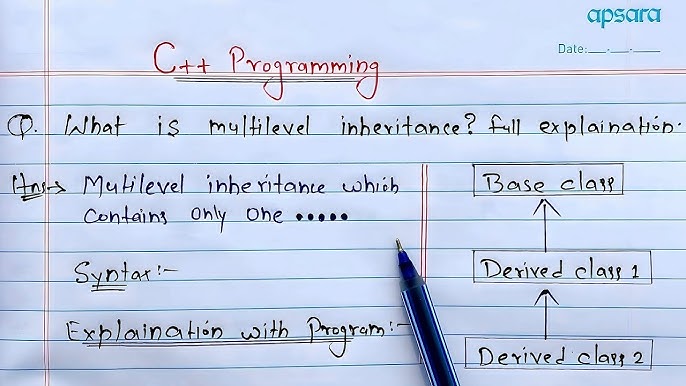 apsara
Date:__.__.__
C++ Programming
Q. What is multilevel inheritance? full explaination.
Ans→ Mutilevel inheritance which
contains only one •••••
Syntax:-
Explaination with Program:-
Base class
Derived class 1
Derived class 2